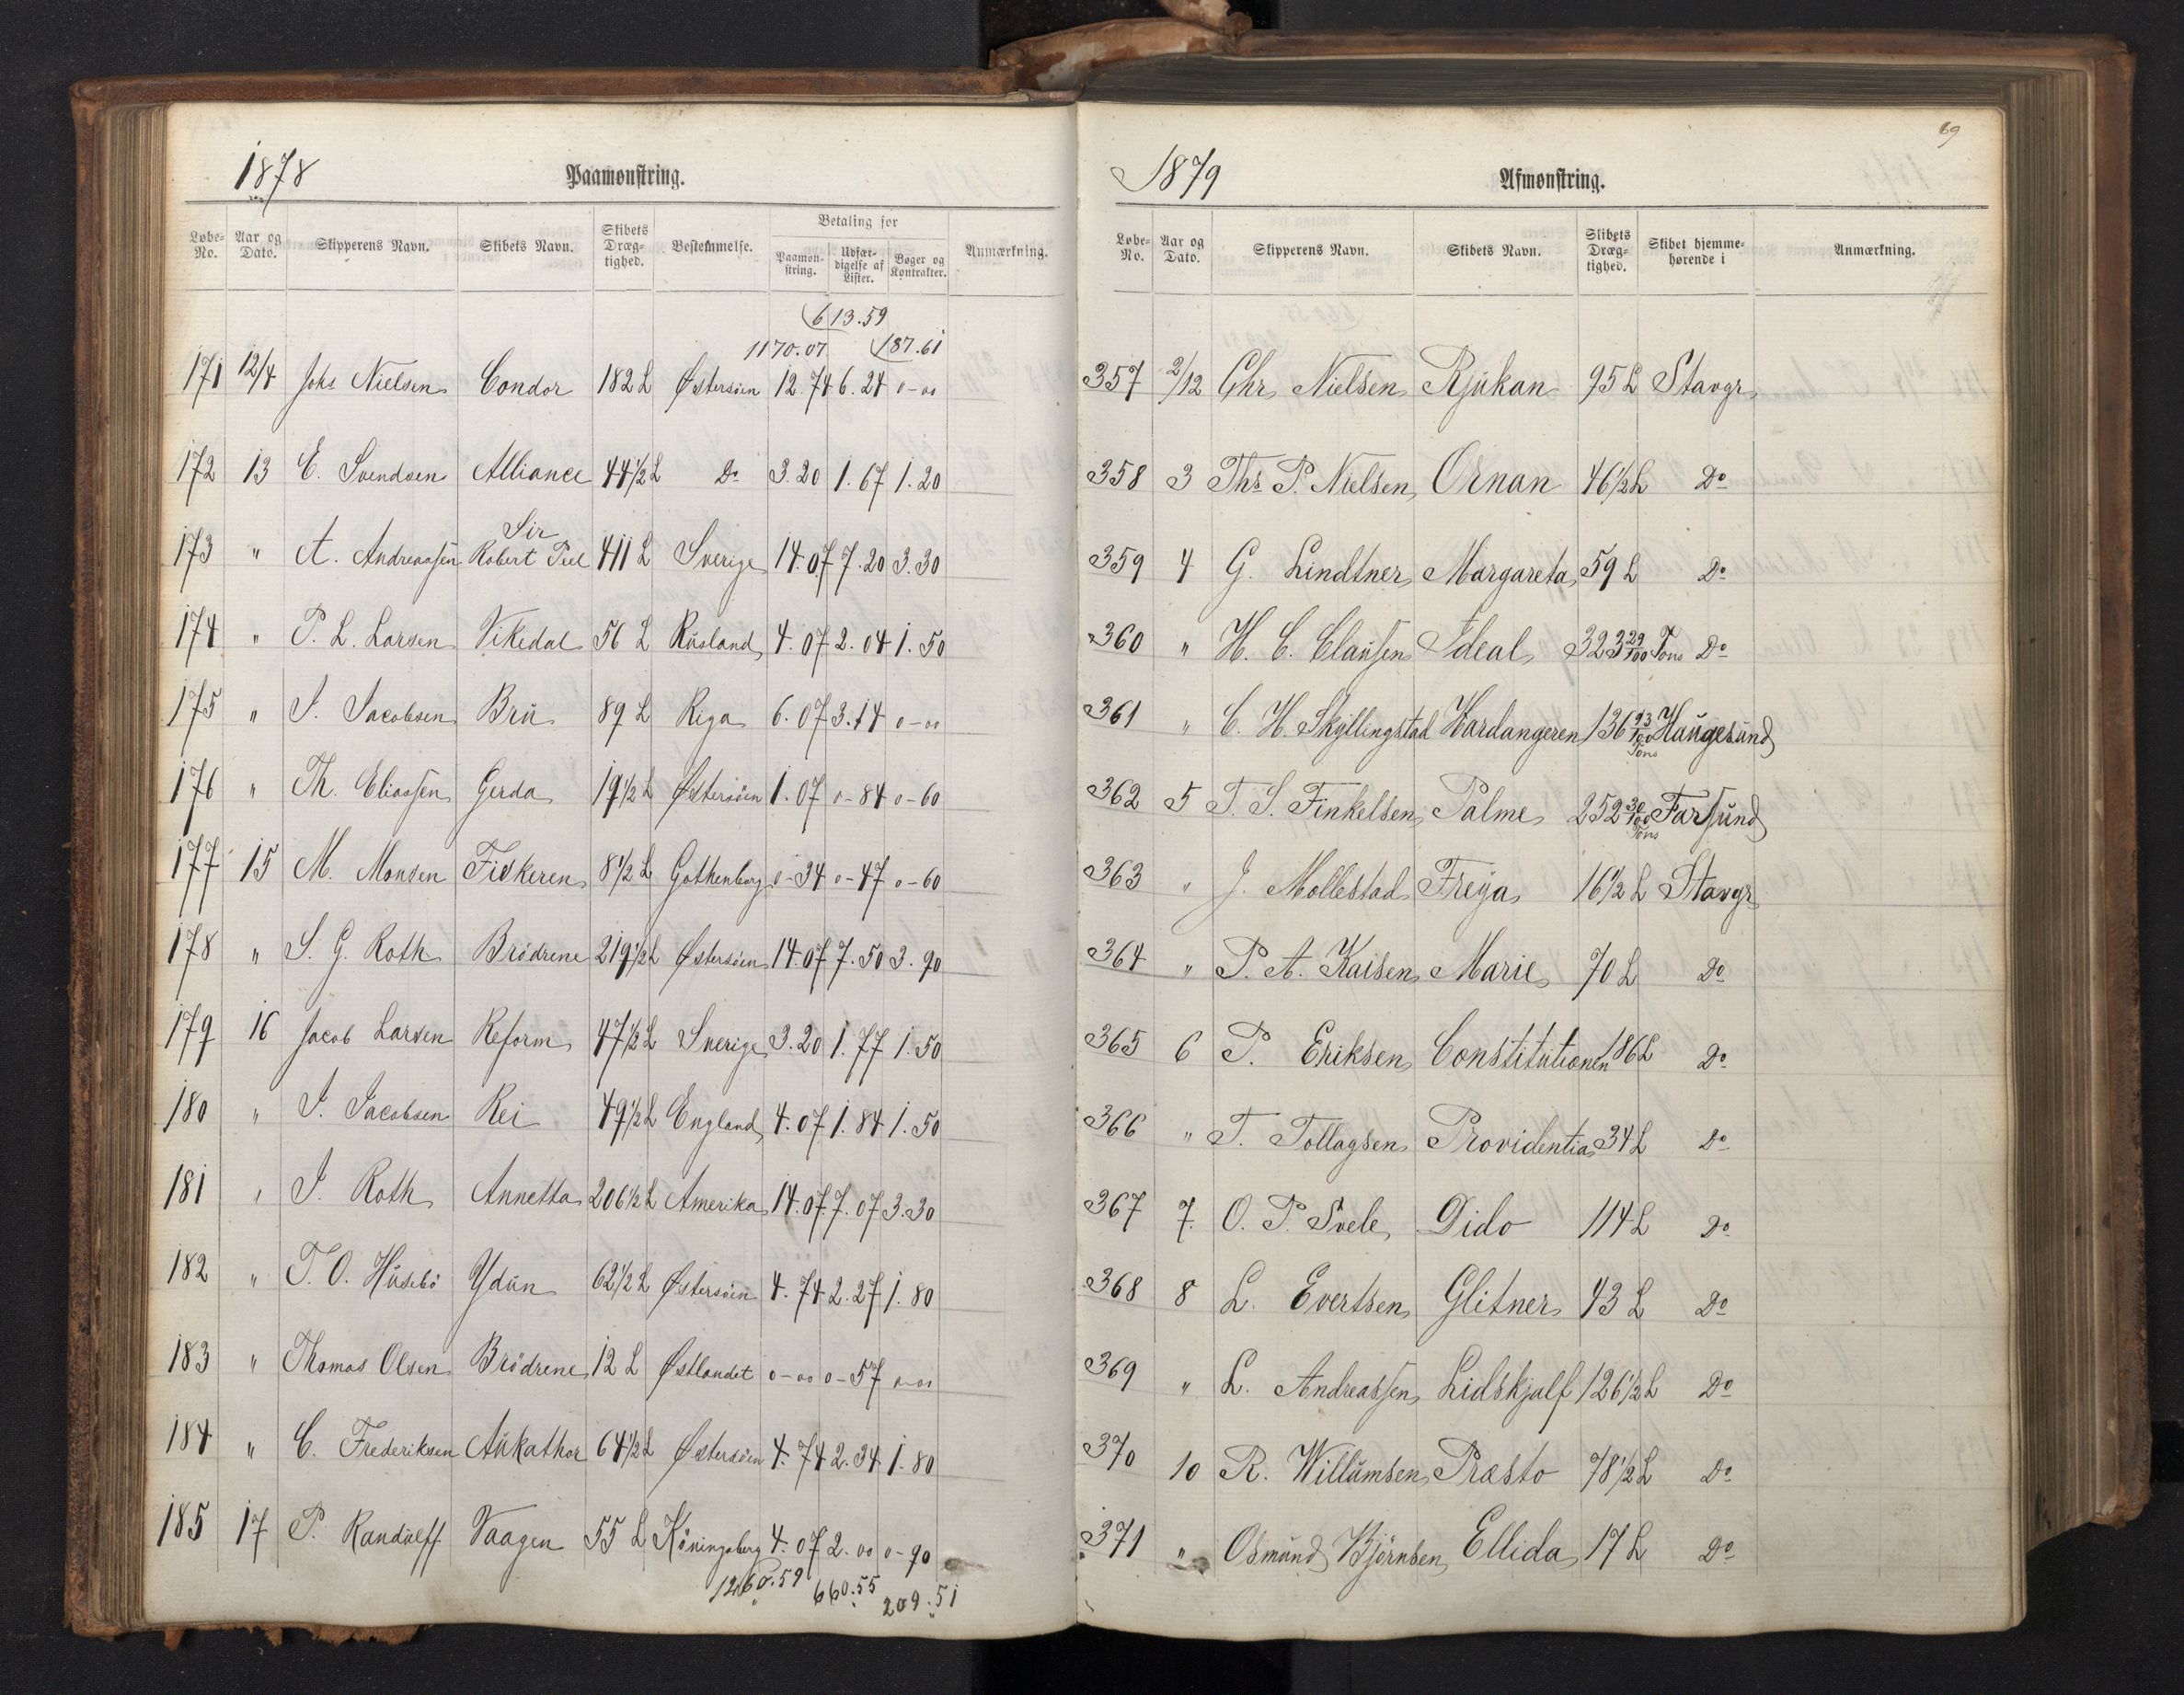 1878 Paamønstring.
Løbe-No. Aar og Dato. Skipperens Navn. Skibets Navn. Skibets Dræg-tighed. Bestemmelse. Betaling for Paamøn-string. Udfær-digelse af Lister. Bøger og Kontrakter. Anmærkning.
613.59
1170.07 187.61
171 12/4 Johs Nielsen Condor 182 L Østersöen 12.74 6.24 0-00
172 13 E. Svendsen Alliance 44 1/2 L Do 3.20 1.67 1.20
173 " A. Andreassen Sir Robert Peel 411 L Sverige 14.07 7.20 3.30
174 " P. L. Larsen Vikedal 56 L Rusland 4.07 2.04 1.50
175 " J. Jacobsen Bru 89 L Riga 6.07 3.14 0-00
176 " Th. Eliassen Gerda 19 1/2 L Østersöen 1.07 0-84 0-60
177 15 M. Monsen Fiskeren 8 1/2 L Gothenborg 0-34 0-47 0-60
178 " S. G. Roth Brödrene 219 1/2 L Østersöen 14.07 7.50 3.90
179 16 Jacob Larsen Reform 47 1/2 L Sverige 3.20 1.77 1.50
180 " J. Jacobsen Rei 49 1/2 L England 4.07 1.84 1.50
181 " J. Roth Annetta 206 1/2 L Amerika 14.07 7.07 3.30
182 " T. O. Husebö Ydun 62 1/2 L Østersöen 4.74 2.27 1.80
183 " Thomas Olsen Brödrene 12 L Østlandet 0-00 0-57 0-00
184 " C. Frederiksen Aukathor 64 1/2 L Østersöen 4.74 2.34 1.80
185 17 P. Randulff Vaagen 55 L Köningsberg 4.07 2.00 0-90
1260.59 660.55 209.51
69
1879 Afmønstring.
Løbe-No. Aar og Dato. Skipperens Navn. Skibets Navn. Skibets Dræg-tighed. Skibet hjemme-hørende i Anmærkning.
357 2/12 Chr. Nielsen Rjukan 95 L Stavgr
358 3 Ths P. Nielsen Ornan 46 1/2 L Do
359 4 G. Lindtner Margareta 59 L Do
360 " H. C. Claussen Ideal 323 29/100 Tons Do
361 " C. H. Skyllingstad Hardangeren 136 93/100 Tons Haugesund
362 5 T. S. Finkelsen Palme 252 30/100 Tons Farsund
363 " J. Mollestad Freya 16 1/2 L Stavgr
364 " P. A. Kaisen Marie 70 L Do
365 6 P. Eriksen Constitutionen 186 L Do
366 " T. Tollagsen Providentia 34 L Do
367 7. O. P. Svele Dido 114 L Do
368 8 L. Evertsen Glitner 43 L Do
369 " L. Andreassen Lidskjalf 126 1/2 L Do
370 10 R. Willumsen Præsto 78 1/2 L Do
371 " Osmund Bjørnsen Ellida 17 L Do